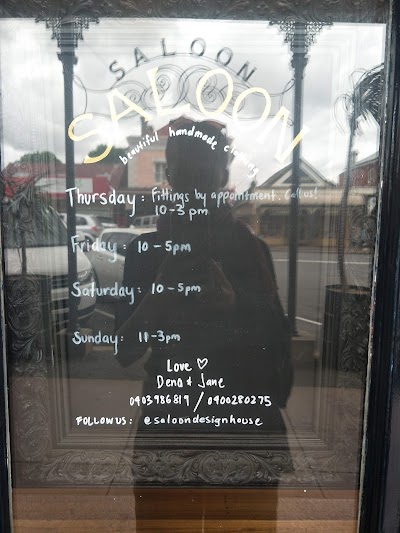 SALOON
SALOON
beautiful handmade clothing
Thursday: Fittings by appointment. Call us!
10-3pm
Friday: 10-5pm
Saturday: 10-5pm
Sunday: 11-3pm
Love ♡
Dena & Jane
0403986819 / 0400280275
FOLLOW US: @saloondesignhouse